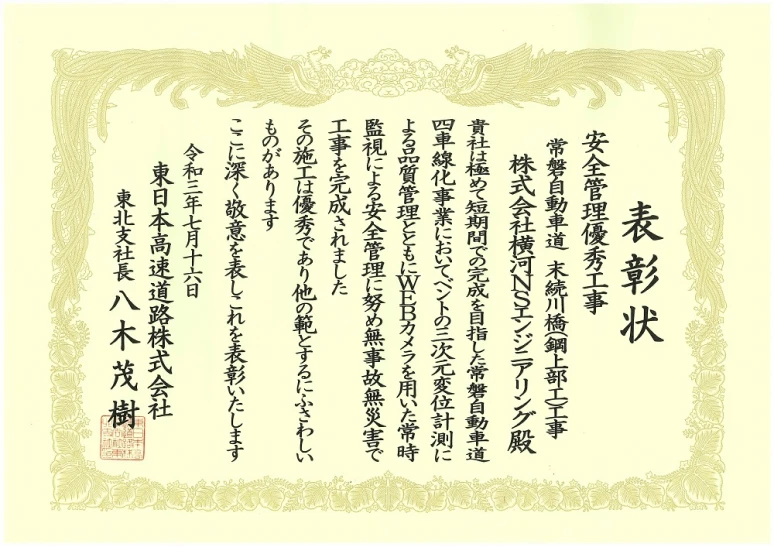 表彰状
安全管理優秀工事
常磐自動車道 末続川橋(鋼上部工)工事
株式会社横河NSエンジニアリング殿
貴社は極めて短期間での完成を目指した常磐自動車道
四車線化事業においてベントの三次元変位計測に
よる品質管理とともにWEBカメラを用いた常時
監視による安全管理に努め無事故無災害で
工事を完成されました
その施工は優秀であり他の範とするにふさわしい
ものがあります
ここに深く敬意を表しこれを表彰いたします
令和三年七月十六日
東日本高速道路株式会社
東北支社長 八木茂樹